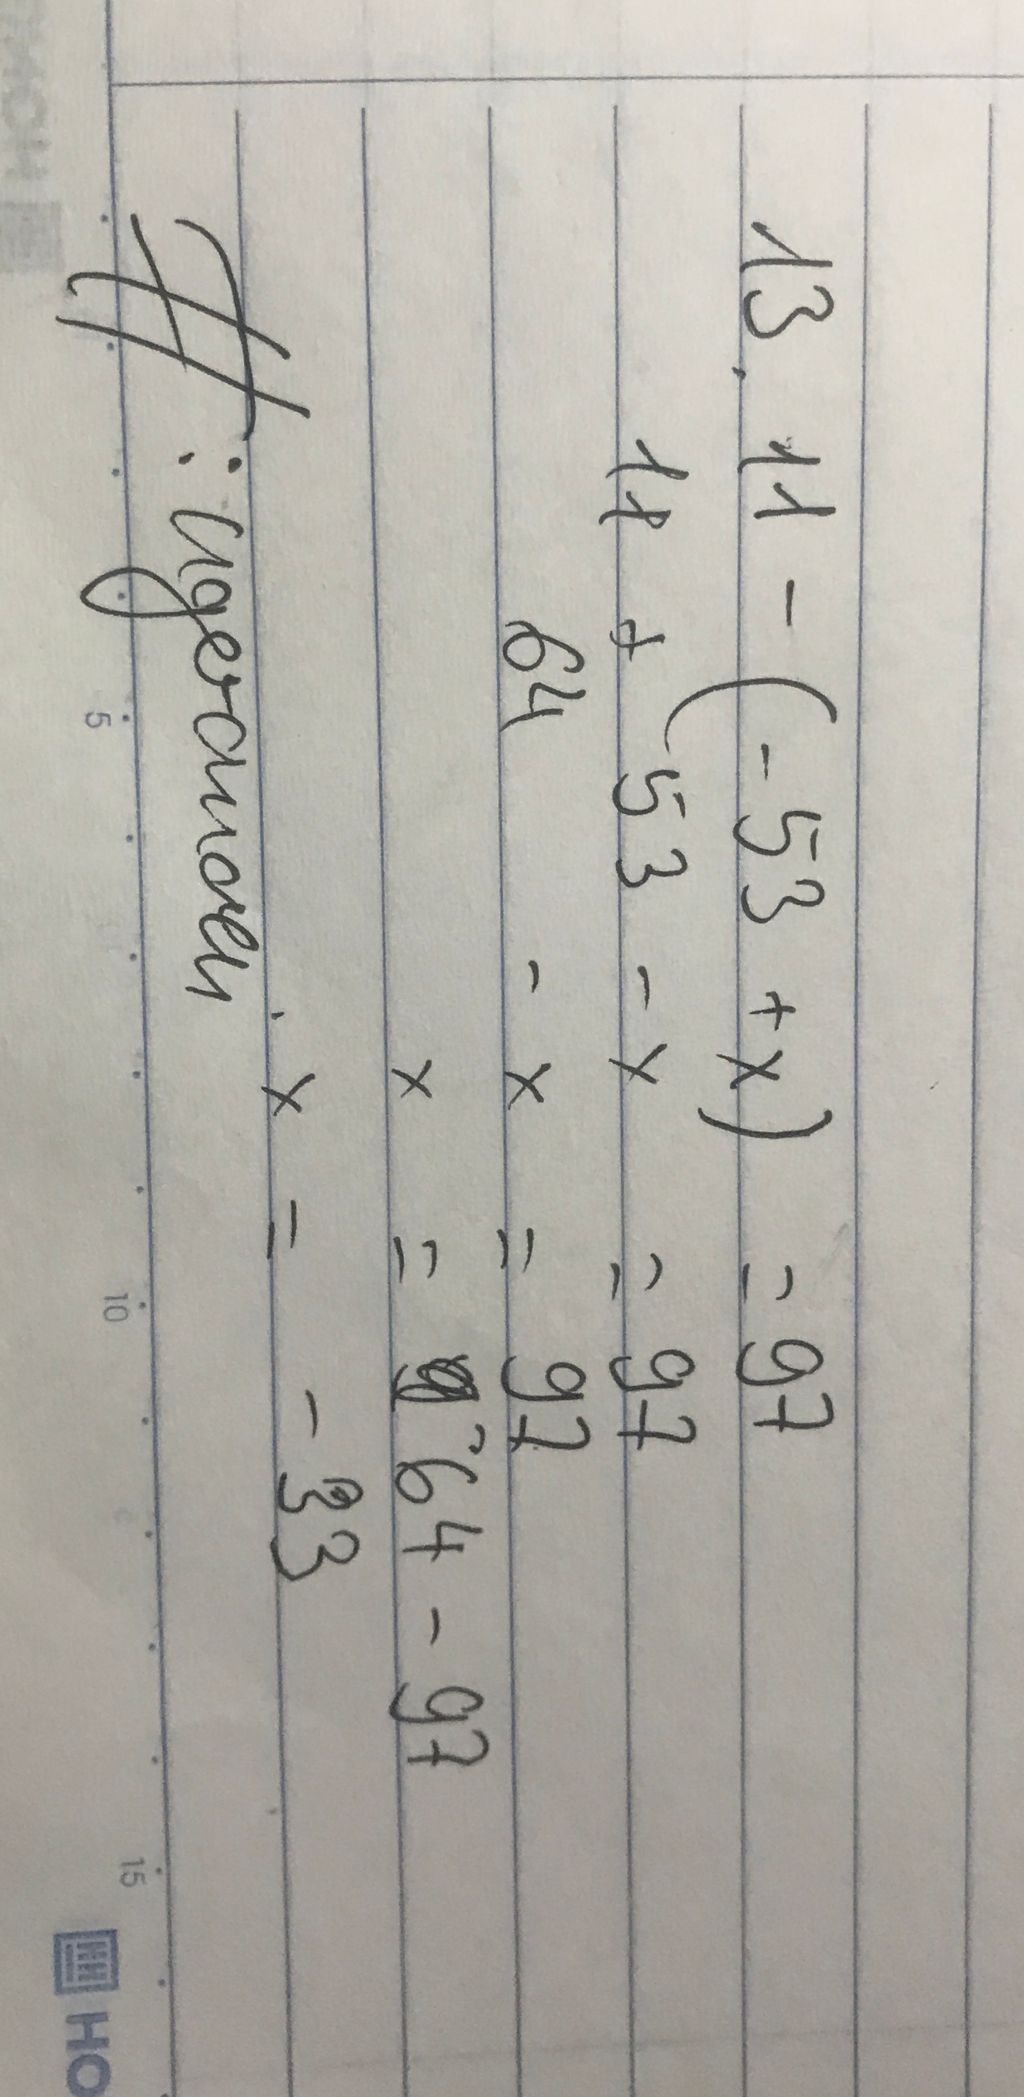 13. 11 - (-53 + x) = 97
11 + 53 - x = 97
64 - x = 97
x = 64 - 97
x = -33
5 10 15
HO